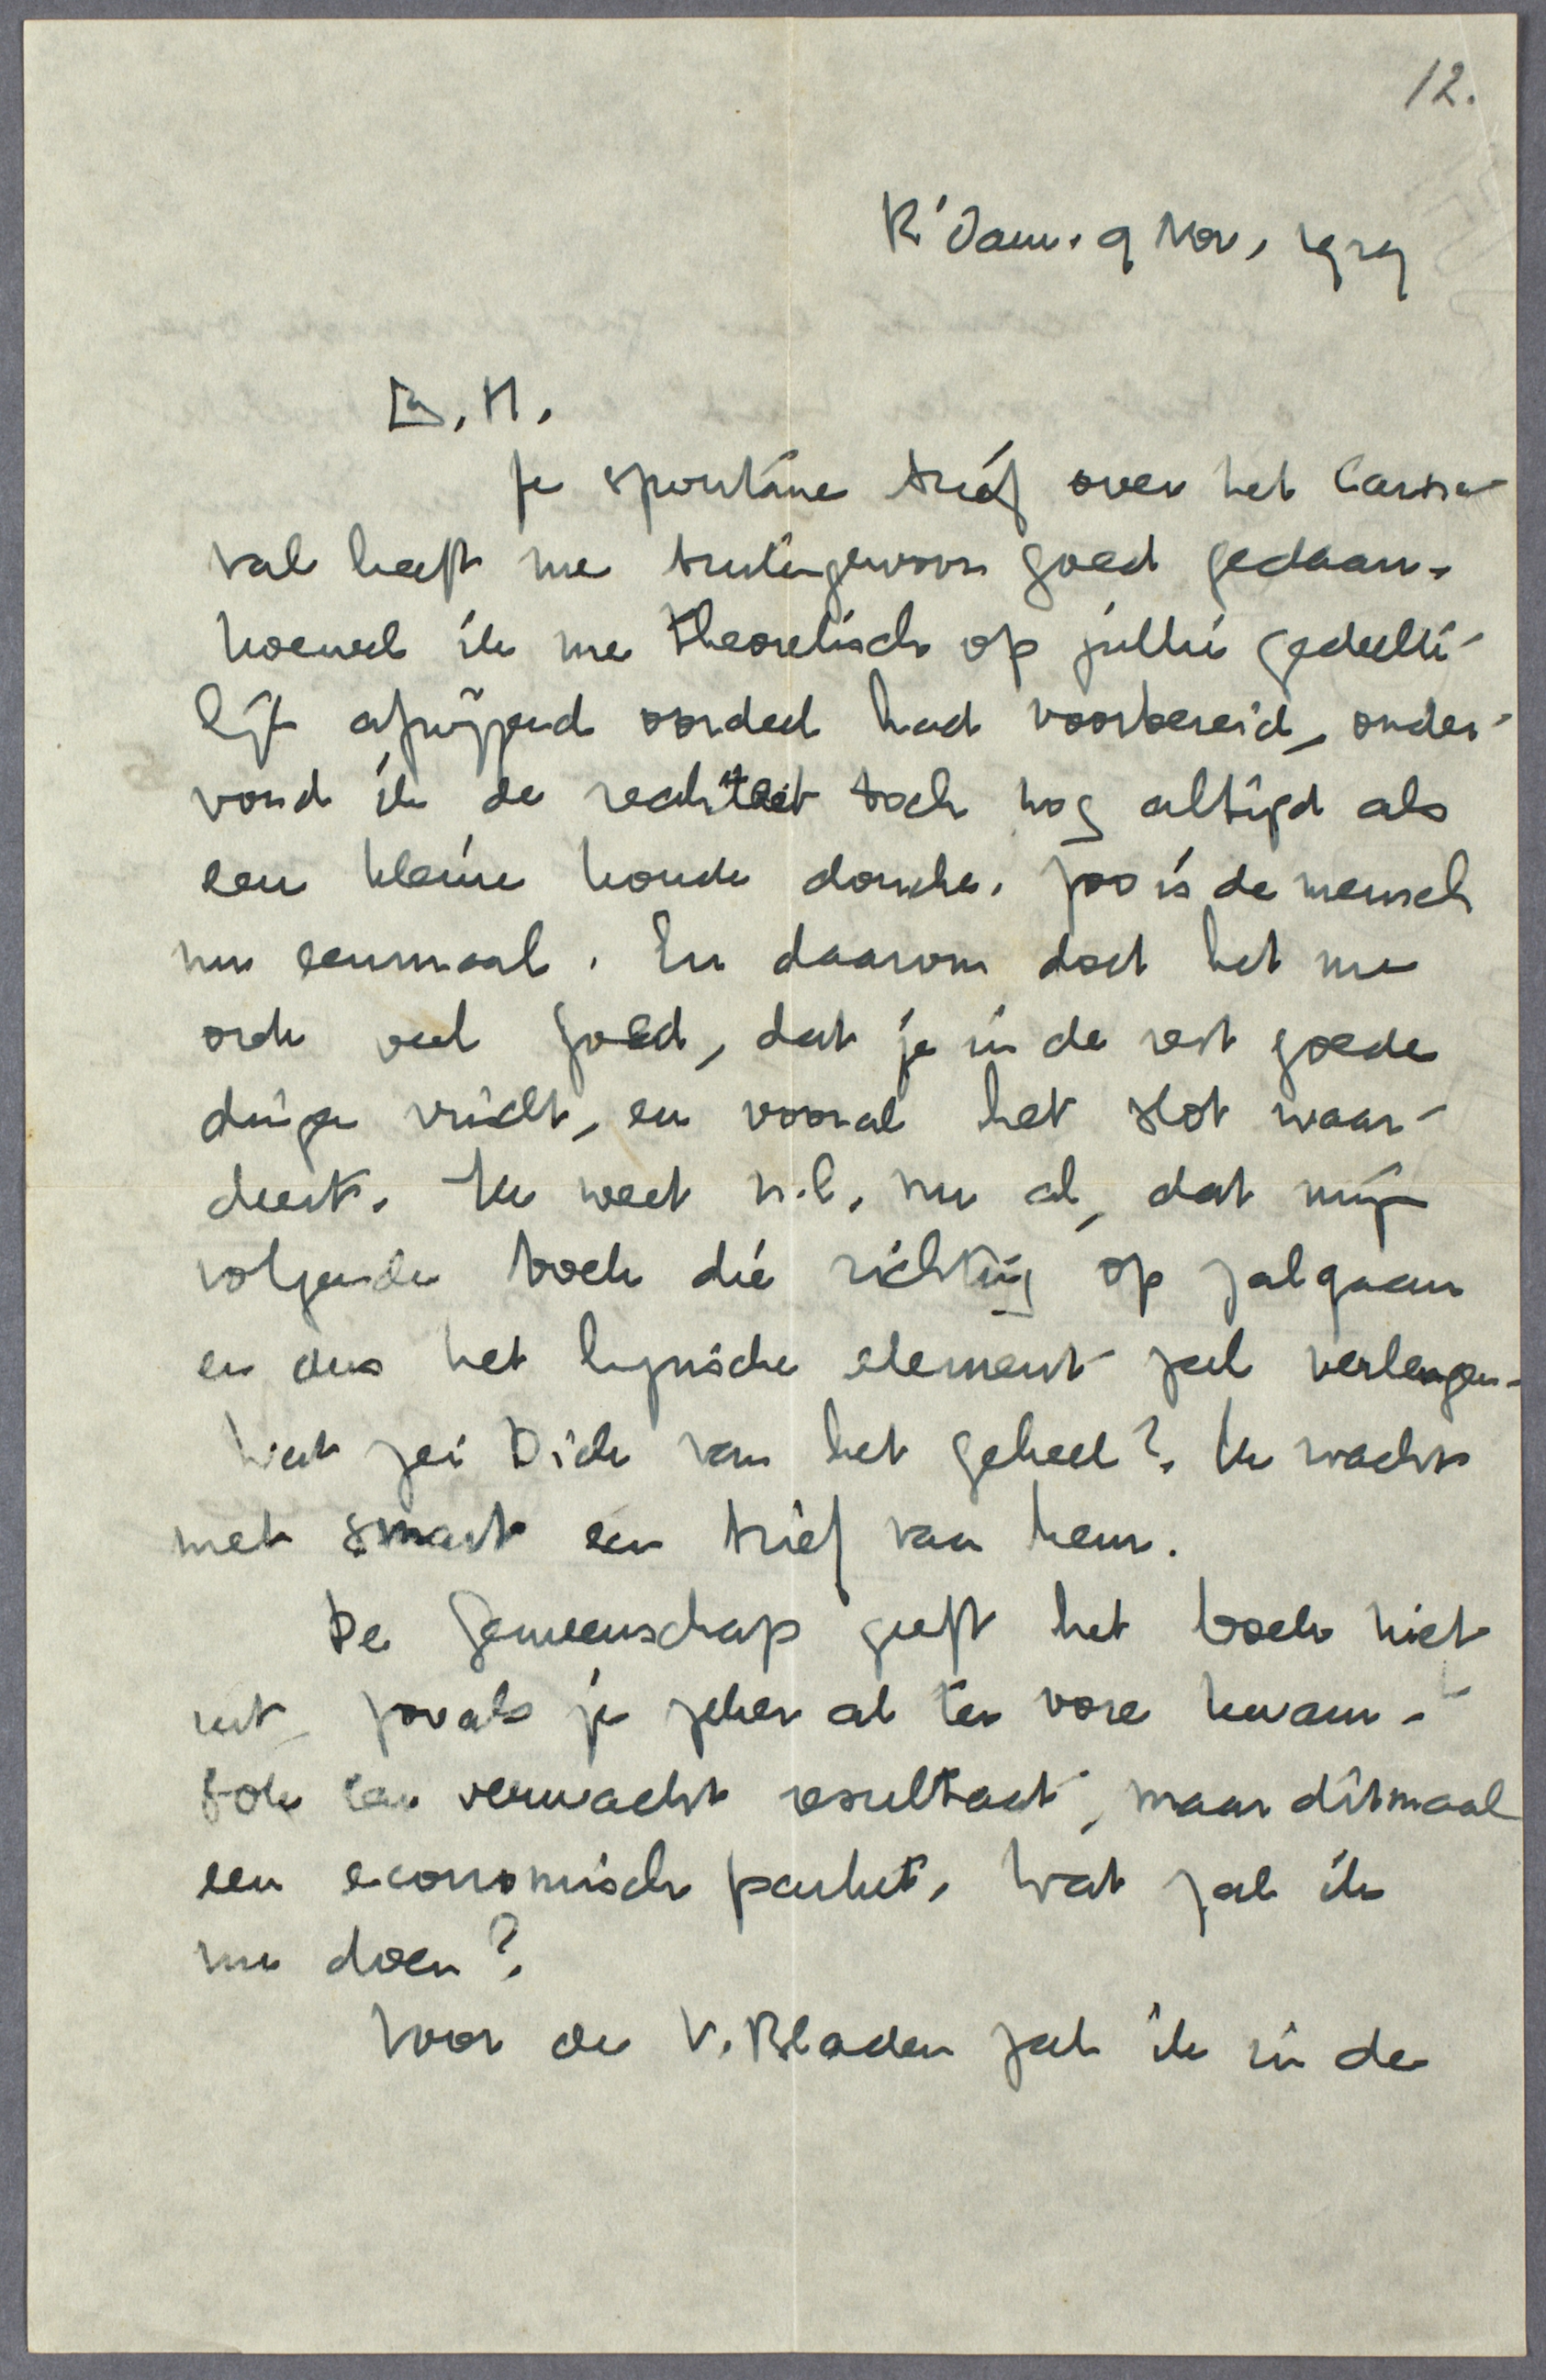 12.
R'dam. 9 Nov. 1929
B. M.
Je spontane brief over het Carna-
val heeft me buitengewoon goed gedaan.
hoewel ik me theoretisch op jullie gedeelte-
lijk afwijzend oordeel had voorbereid, onder-
vond ik de realiteit toch nog altijd als
een kleine koude douche. Zoo is de mensch
nu eenmaal. En daarom doet het me
ook veel goed, dat je in de rest goede
dingen vindt, en vooral het slot waar-
deert. Ik weet n.l. nu al, dat mijn
volgende boek dié richting op zal gaan
en dus het lyrische element zal verlengen.
Wat zei Dick van het geheel? Ik wacht
met smart een brief van hem.
De Gemeenschap geeft het boek niet
uit, zooals je zeker al ter oore kwam.
Ook een verwacht resultaat, maar ditmaal
een economisch parket. Wat zal ik
nu doen?
Voor de V. Bladen zal ik in de